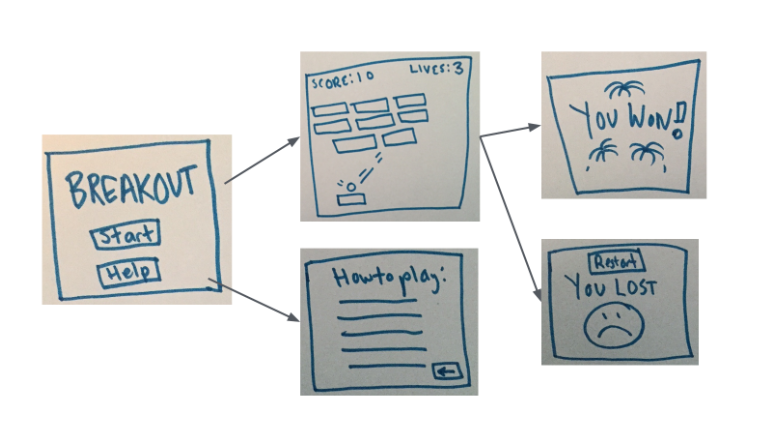 BREAKOUT
Start
Help
SCORE:10 LIVES:3
How to play:
YOU WON!
Restart
YOU LOST